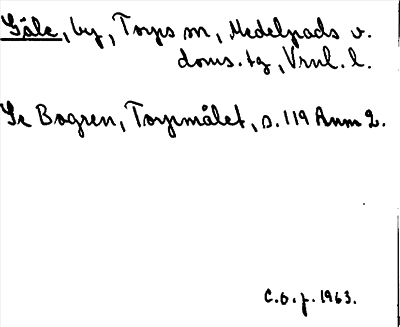 Gåle, by, Torps sn, Medelpads v.
doms. tg, Vrnl. l.
Se Bogren, Torpmålet, s. 119 Anm 2.
C.O.f. 1963.